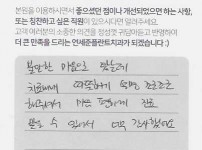 본원을 이용하시면서 좋으셨던 점이나 개선되었으면 하는 사항,
또는 칭찬하고 싶은 직원이 있으시다면 알려주세요.
고객 여러분의 소중한 의견을 정성껏 귀담아듣고 반영하여
더 큰 만족을 드리는 연세준플란트치과가 되겠습니다 :)
불안한 마음으로 왔는데
따뜻하게
해주셔서 마음 편하게 진료
받을 수 있어서 너무 감사했어요